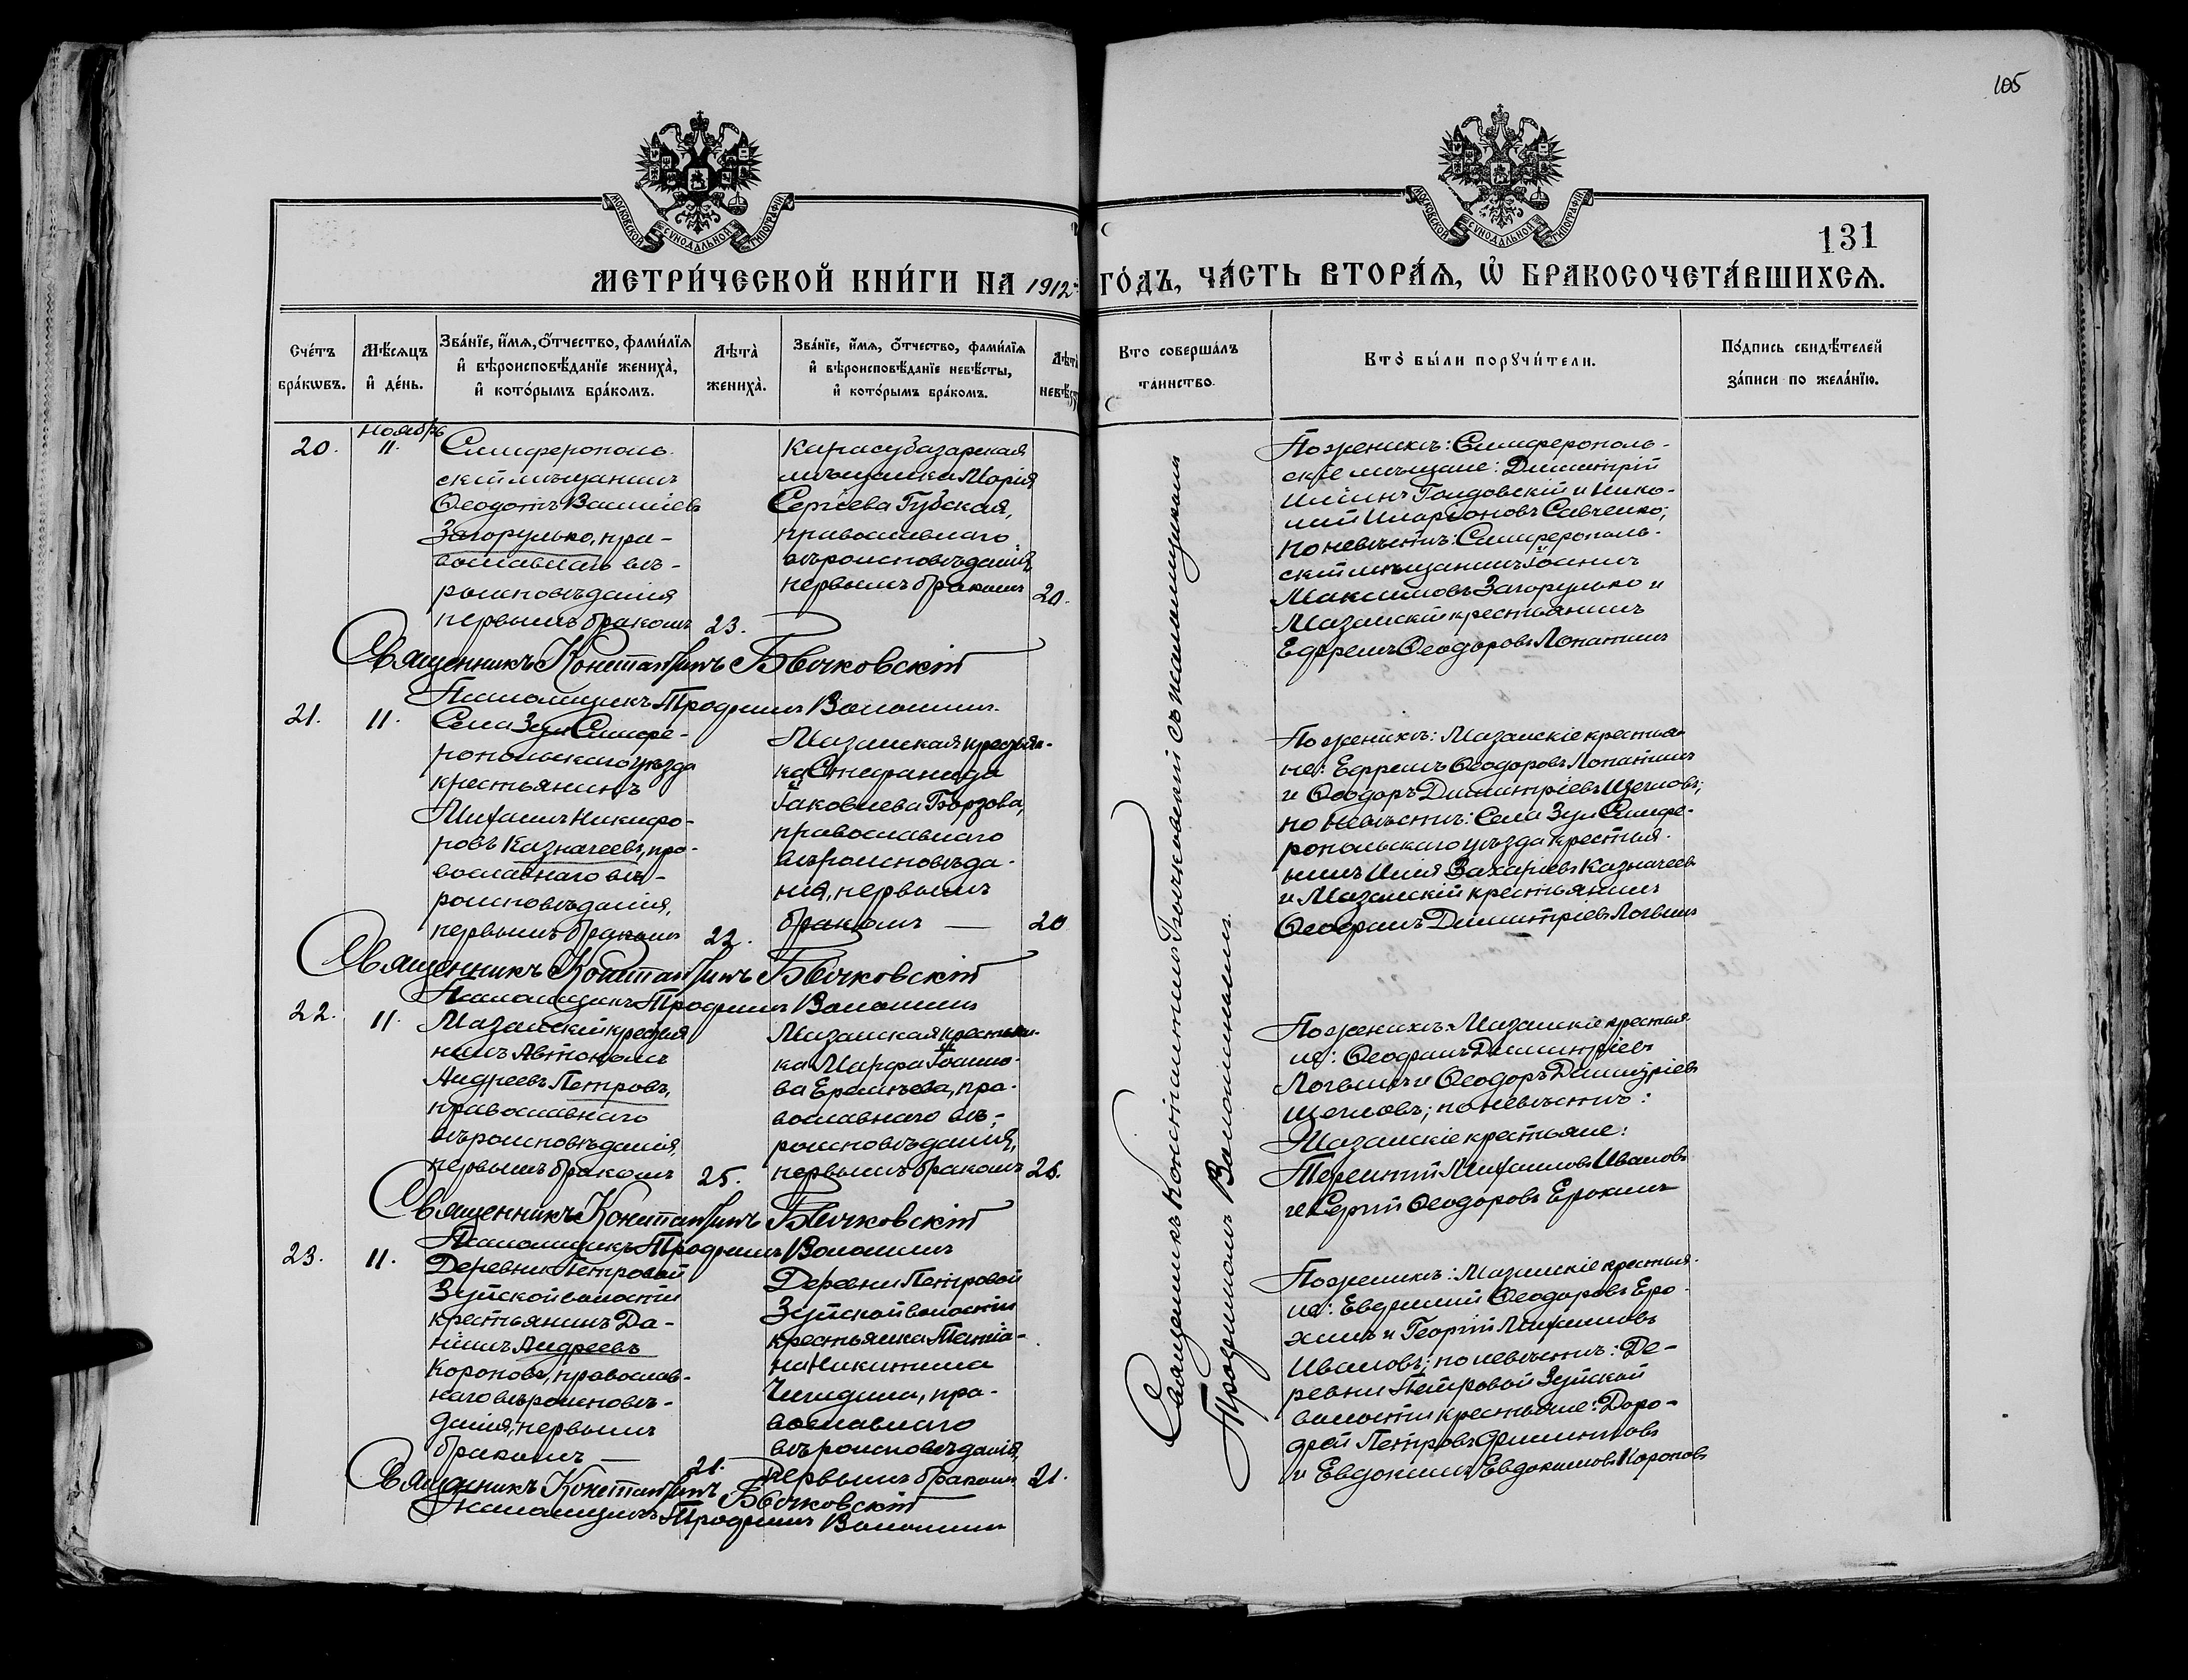 105
МОСКОВСКОЙ СѴНОДАЛЬНОЙ ТИПОГРАФІИ
МОСКОВСКОЙ СѴНОДАЛЬНОЙ ТИПОГРАФІИ
131
МЕТРИ́ЧЕСКОЙ КНИ́ГИ НА 1912 ГО́ДЪ, ЧА́СТЬ ВТОРА́Ѧ, Ѡ҆ БРАКОСОЧЕТА́ВШИХСѦ.
Сче́тъ бра́кѡвъ.
Мѣ́сѧцъ и҆ де́нь.
Зва́нїе, и҆́мѧ, ѻ҆́тчество, фами́лїѧ и҆ вѣроисповѣ́данїе жениха̀, и҆ кото́рымъ бра́комъ.
Лѣта̀ жениха̀.
Зва́нїе, и҆́мѧ, ѻ҆́тчество, фами́лїѧ и҆ вѣроисповѣ́данїе невѣ́сты, и҆ кото́рымъ бра́комъ.
Лѣта̀ невѣ́с
Кто соверша́лъ та́инство.
Кто̀ бы́ли порꙋчи́тели.
По́дпись свидѣ́телей за́писи по жела́нїю.
20.
Ноябрь
11.
Симферополь-
скій мѣщанинъ
Ѳеодотъ Василіевъ
Загорулько, пра-
вославнаго вѣ-
роисповѣданія
первымъ бракомъ 23.
Карасубазарская
мѣщанка Марія
Сергіева Губская,
православнаго
вѣроисповѣданія,
первымъ бракомъ 20.
По женихѣ: Симферополь-
скіе мѣщане: Димитрій
Иліинъ Голдовскій и Нико-
лай Иларіоновъ Савченко;
по невѣстѣ: Симферополь-
скій мѣщанинъ Іоаннъ
Максимовъ Загорулько и
Мазанскій крестьянинъ
Ефремъ Ѳеодоровъ Лопатинъ
Священникъ Константинъ Бычковскій
Псаломщикъ Трофимъ Волошинъ.
21.
11.
Села Зуи Симфе-
ропольскаго уѣзда
крестьянинъ
Михаилъ Никифо-
ровъ Казначеевъ, пра-
вославнаго вѣ-
роисповѣданія,
первымъ бракомъ 22.
Мазанская крестьян-
ка Стефанида
Іаковлева Борзова,
православнаго
вѣроисповѣда-
нія, первымъ
бракомъ — 20
По женихѣ: Мазанскіе крестья-
не: Ефремъ Ѳеодоровъ Лопатинъ
и Ѳеодоръ Димитріевъ Щегловъ;
по невѣстѣ: Села Зуи Симфе-
ропольскаго уѣзда крестья-
нинъ Илія Захаріевъ Казначеевъ
и Мазанскій крестьянинъ
Ѳеофанъ Димитріевъ Логвинъ
Священникъ Константинъ Бычковскій
Псаломщикъ Трофимъ Волошинъ
22.
11.
Мазанскій крестья-
нинъ Автономъ
Андреевъ Петровъ,
православнаго
вѣроисповѣданія,
первымъ бракомъ 25.
Мазанская крестьян-
ка Марфа Іоанно-
ва Еремѣева, пра-
вославнаго вѣ-
роисповѣданія,
первымъ бракомъ 26.
По женихѣ: Мазанскіе крестья-
не: Ѳеофанъ Димитріевъ
Логвинъ и Ѳеодоръ Димитріевъ
Щегловъ; по невѣстѣ:
Мазанскіе крестьяне:
Терентій Михаиловъ Ивановъ
и Сергій Ѳеодоровъ Ерохинъ
Священникъ Константинъ Бычковскій
Псаломщикъ Трофимъ Волошинъ
23.
11.
Деревни Петровой
Зуйской волости
крестьянинъ Да-
ніилъ Андреевъ
Короповъ, православ-
наго вѣроисповѣ-
данія, первымъ
бракомъ — 21.
Деревни Петровой
Зуйской волости
крестьянка Татіа-
на Никитина
Чигидина, пра-
вославнаго
вѣроисповѣданія,
первымъ бракомъ 21.
По женихѣ: Мазанскіе крестья-
не: Евфимій Ѳеодоровъ Еро-
хинъ и Георгій Михаиловъ
Ивановъ; по невѣстѣ: Де-
ревни Петровой Зуйской
волости крестьяне: Доро-
фей Петровъ Филиповъ
и Евдокимъ Евдокимовъ Короповъ
Священникъ Константинъ Бычковскій
Псаломщикъ Трофимъ Волошинъ
Священникъ Константинъ Бычковскій съ псаломщикомъ
Трофимомъ Волошинымъ.